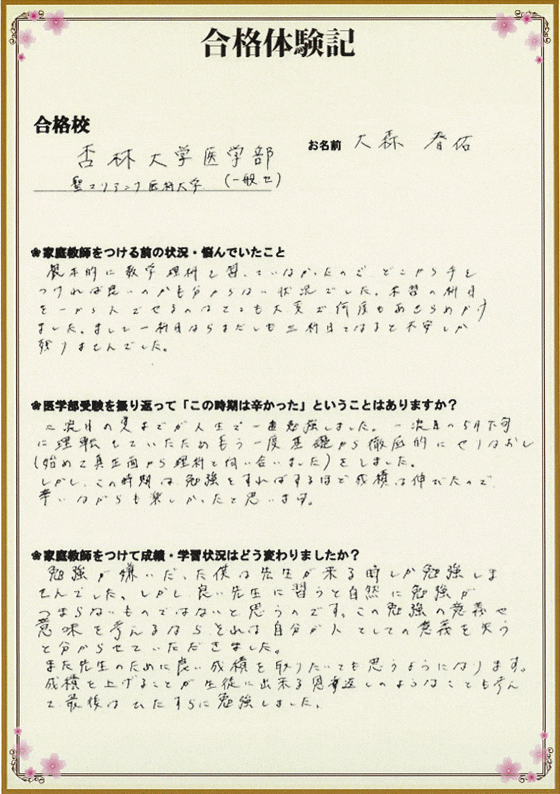 合格体験記
合格校
杏林大学医学部
お名前 大森 春佑
聖マリアンナ医科大学 (一般せ)
❀家庭教師をつける前の状況・悩んでいたこと
根本的に数学理科を習っていなかったので、どこから手を
つければ良いのかも分からない状況でした。未習の科目
を一から入れるのはとても大変で何度もあきらめかけ
ました。まして一科目ならまだしも三科目ともなると不安しか
残りませんでした。
❀医学部受験を振り返って「この時期は辛かった」ということはありますか?
二浪目の夏までが人生で一番勉強しました。一浪目の5月下旬
に理転をしていたためもう一度基礎から徹底的にやりなおし
(始めて真正面から理科と向い合いました)をしました。
しかし、この時期は勉強をすればするほど成績は伸びたので、
辛いながらも楽しかったと思います。
❀家庭教師をつけて成績・学習状況はどう変わりましたか?
勉強が嫌いだった僕は先生が来る時しか勉強しま
せんでした。しかし良い先生に習うと自然に勉強が
つまらないものではないと思うのです。この勉強の意義や
意味を考えるならそれは自分が人としての意義を失う
と分からせていただきました。
また先生のために良い成績を取りたいても思うようになります。
成績を上げることが生徒に出来る恩返しのようなことも考え
て最後はひたすらに勉強しました。